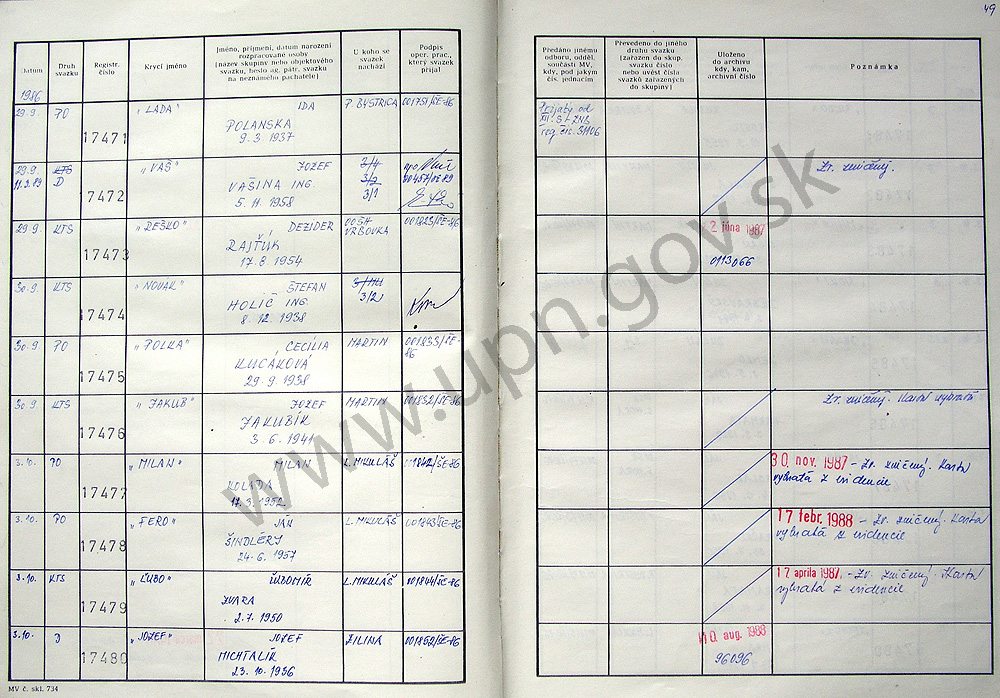 49
Datum
Druh svazku
Registr. číslo
Krycí jméno
Jméno, příjmení, datum narození
rozpracované osoby
(název skupiny nebo objektového
svazku, heslo ag. pátr. svazku
na neznámého pachatele)
U koho se
svazek
nachází
Podpis
oper. prac.,
který svazek
přijal
Předáno jinému
odboru, odděl.
součásti MV,
kdy, pod jakým
čís. jednacím
Převedeno do jiného
druhu svazku
(zařazen do skup.
svazku číslo
nebo uvést čísla
svazků zařazených
do skupiny)
Uloženo
do archivu
kdy, kam,
archivní číslo
Poznámka
1986
29.9. PO 17471 "LADA" IDA P. BYSTRICA 001751/ČE-86
POLANSKA
9.3.1937
Prijatý od
XII. S-ZNB
reg. čís. 31106
29.9. KTS 17472 "VAŠ" JOZEF 3/4
11.2.89 D VAŠINA ING 3/2 00457/ČE-89
5.11.1958 3/1
Zv. zničený.
29.9. KTS 17473 "REŠKO" DEZIDER OOSH 001823/ČE-86
RAJŤÚK VRBOVKA
17.8.1954
2. júna 1987
0113066
30.9. KTS 17474 "NOVÁK" ŠTEFAN
HOLIČ ING 3/2
8.12.1938
30.9. PO 17475 "POLKA" CECÍLIA MARTIN 001833/ČE-
KUČÁKOVÁ 86
29.9.1938
30.9. KTS 17476 "JAKUB" JOZEF MARTIN 001832/ČE-86
JAKUBÍK
3.6.1941
Zv. zničený. Karta vybratá
3.10. PO 17477 "MILAN" MILAN L. MIKULÁŠ 001842/ČE-86
KOLADA
17.3.1952
30. nov. 1987 - Zv. zničený. Karta
vybratá z evidencie
3.10. PO 17478 "FERO" JÁN L. MIKULÁŠ 001843/ČE-86
ŠINDLÉRY
24.6.1957
17 febr. 1988 - Zv. zničený. Karta
vybratá z evidencie
3.10. KTS 17479 "ĽUBO" ĽUBOMÍR L. MIKULÁŠ 001844/ČE-86
ZVARA
2.7.1950
17 apríla 1987. - Zv. zničený. Karta
vybratá z evidencie
3.10. D 17480 "JOZEF" JOZEF ŽILINA 001852/ČE-86
MICHTALÍK
23.10.1936
10. aug. 1988
96096
MV č. skl. 734
www.upn.gov.sk